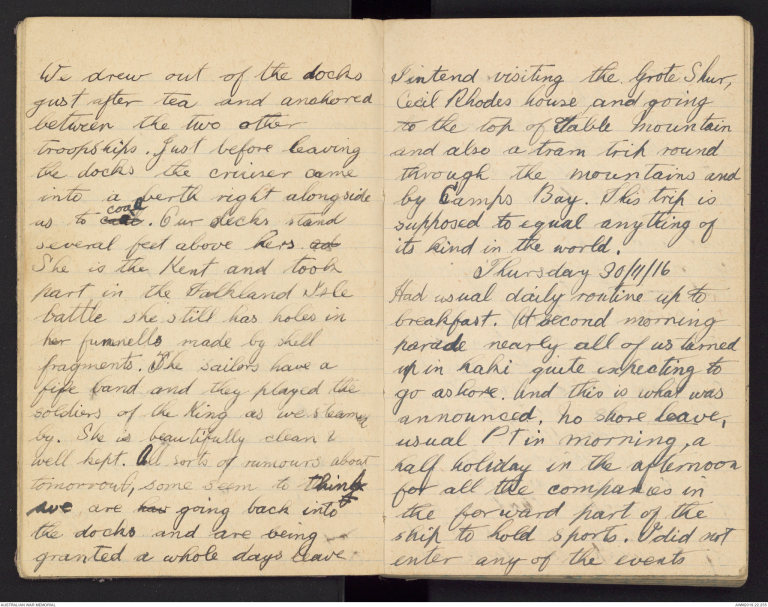 We drew out of the docks
gust after tea and anchored
between the two other
troopships. Just before leaving
the docks the cruiser came
into a berth right alongside
coal
us to coal. Our decks stand
several feet above hers. ad
She is the Kent and took
part in the Falkland Isle
battle she still has holes in
her funnells made by shell
fragments. The sailors have a
fife band and they played the
soldiers of the King as we steamed
by. She is beautifully clean &
well kept. All sorts of rumours about
tomorrout, some seem to think
we are going back into
the docks and are being
granted a whole days leave
I intend visiting the Grote Shur,
Cecil Rhodes house, and going
to the top of Table mountain
and also a tram trip round
through the mountains and
by Camps Bay. This trip is
supposed to equal anything of
its kind in the world.
Thursday 30/11/16
Had usual daily routine up to
breakfast. At second morning
parade nearly all of us turned
up in kaki quite expecting to
go ashore. And this is what was
announced, no shore leave,
usual PT in morning, a
half holiday in the afternoon
for all the companies in
the forward part of the
ship to hold sports. I did not
enter any of the events
AUSTRALIAN WAR MEMORIAL